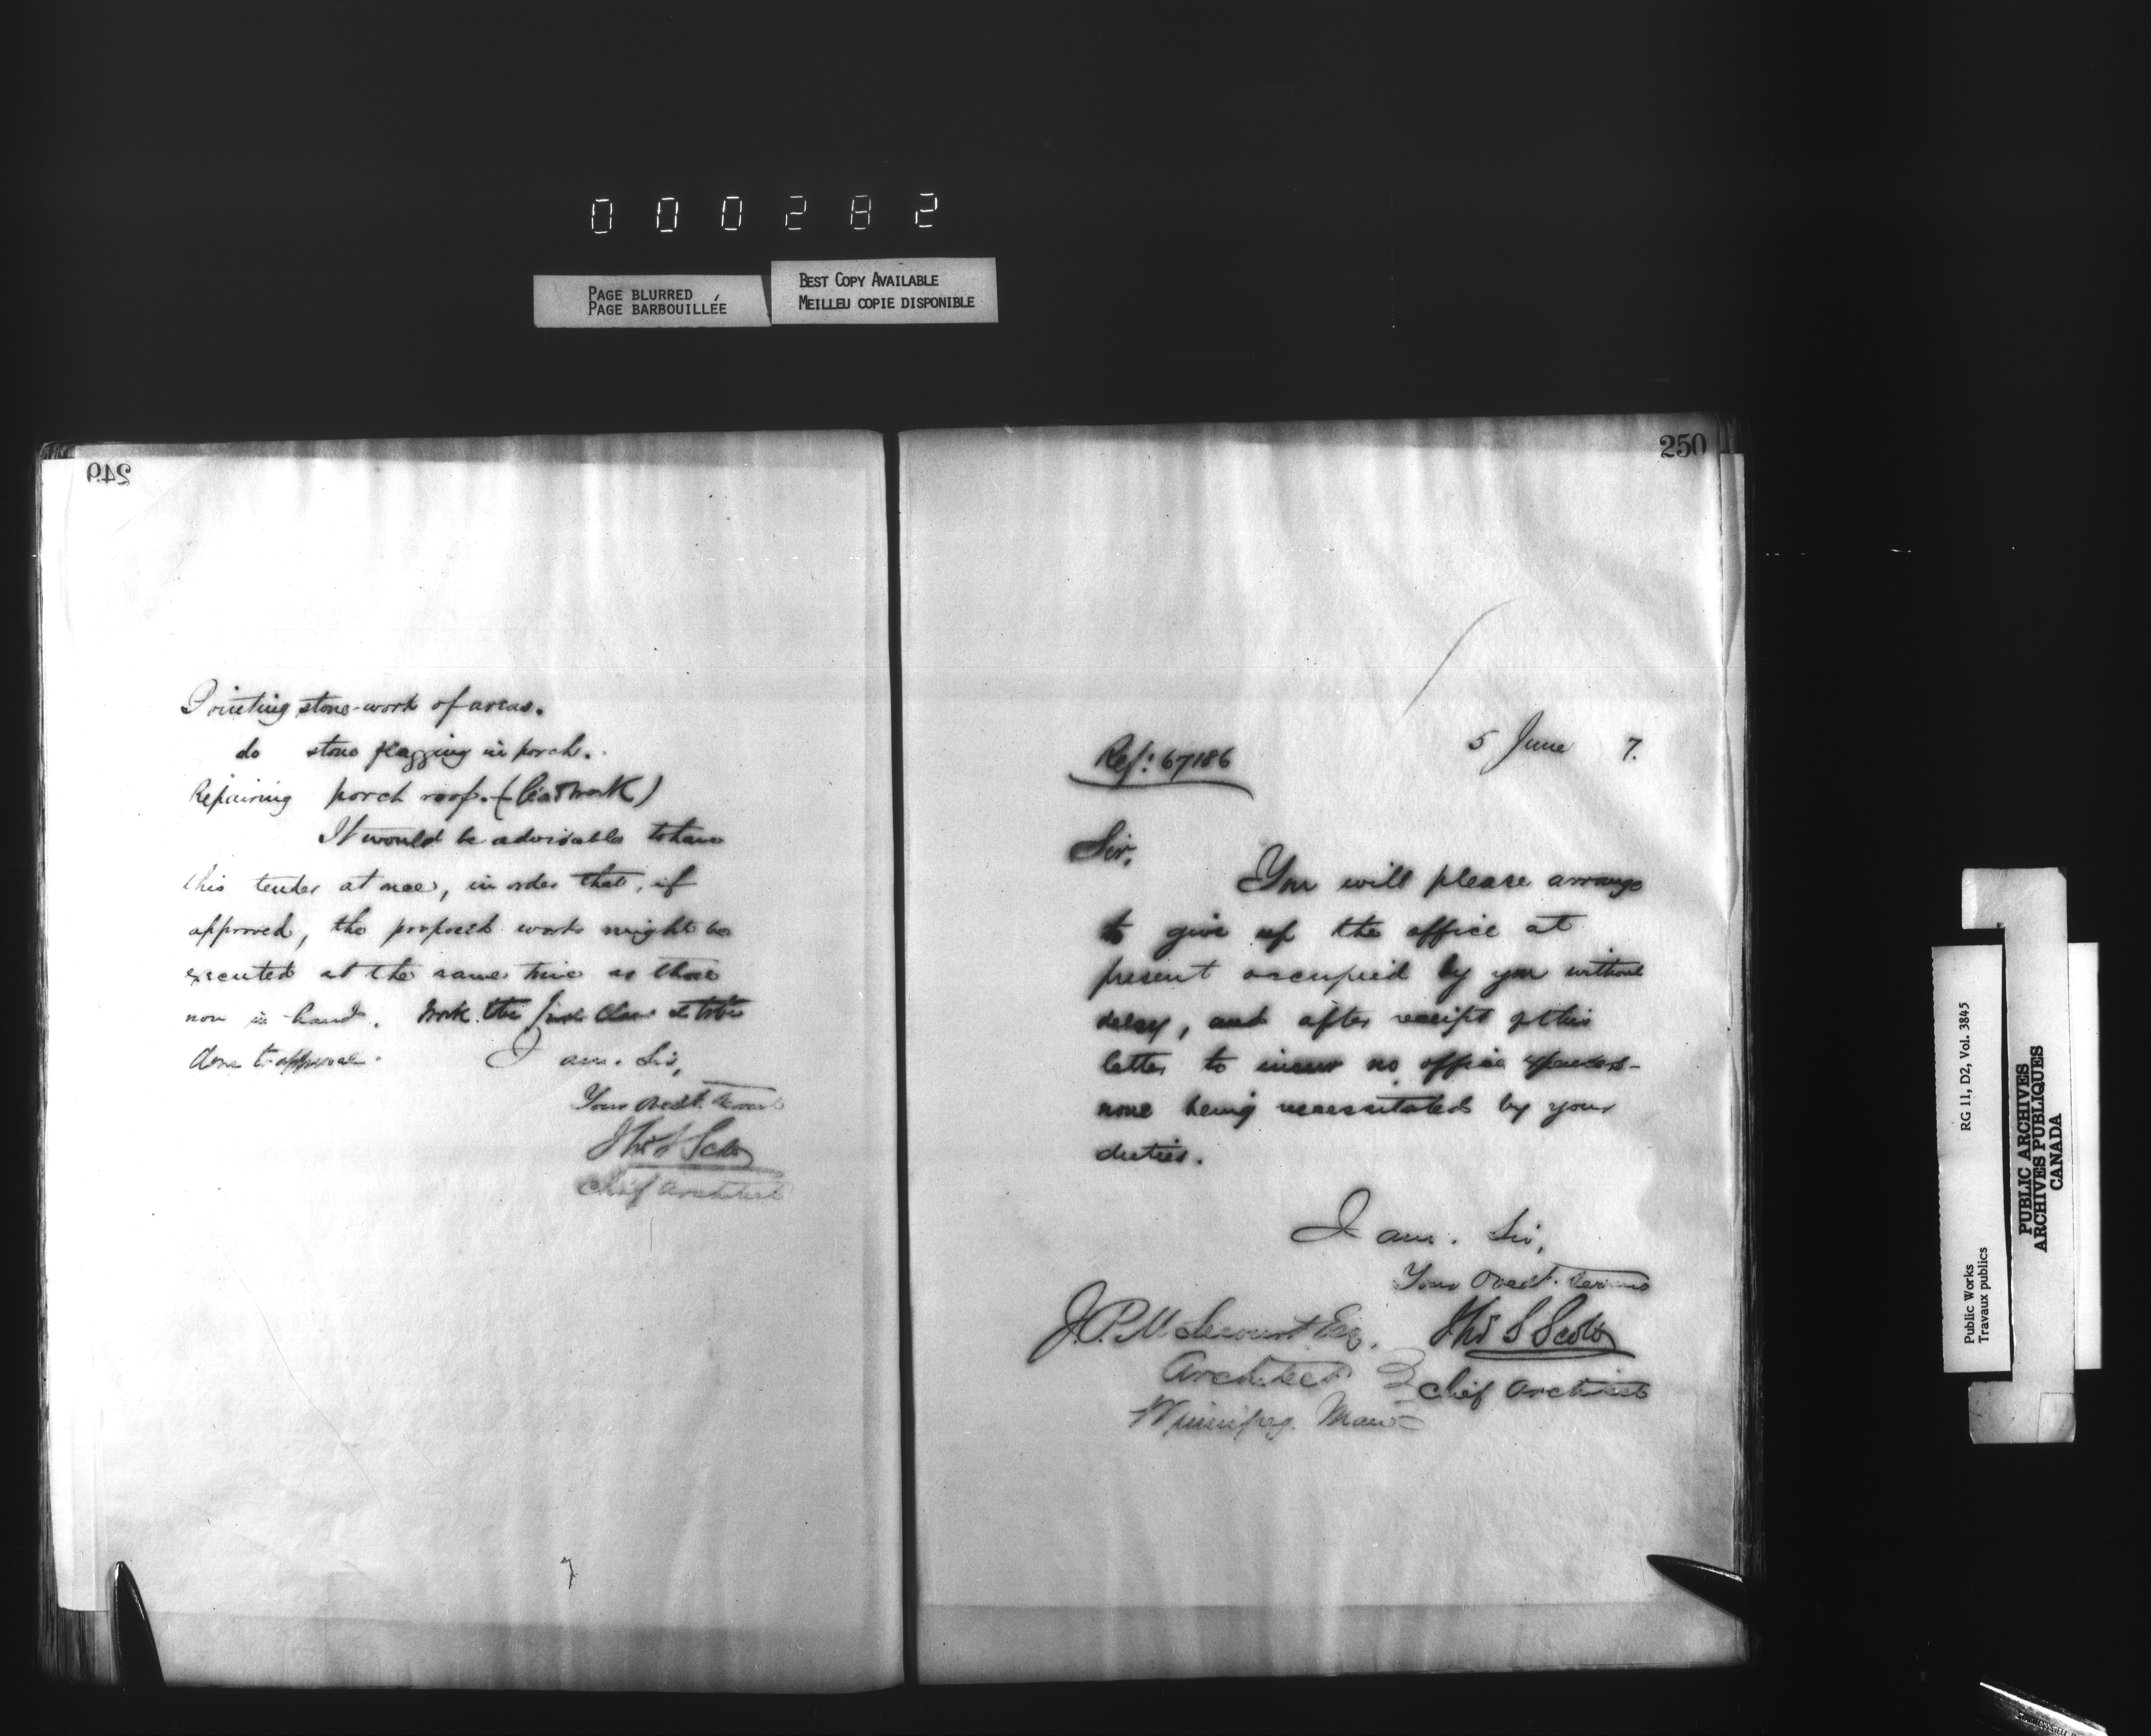 000282
PAGE BLURRED
PAGE BARBOUILLÉE
BEST COPY AVAILABLE
MEILLEU COPIE DISPONIBLE
249
Pointing stone-work of areas.
do stone flagging in porch.
Repairing porch roof.
It would be advisable to have
this tender at once, in order that, if
approved, the proposed works might be
executed at the same time as those
now in hand. Work
done to approval. I am. Sir,
Your Obedt. Servant
Thos S Scott
Chief Architect
250
Ref: 67186
5 June 7.
Sir,
You will please arrange
to give up the office at
present occupied by you without
delay, and after receipt of this
letter to incur no office expenses-
none being necessitated by your
duties.
I am. Sir,
Your Obedt. Servant
Thos S Scott
Chief Architect
J.P.M. Lecourt Esq.
Architect
Winnipeg. Man
Public Works
Travaux publics
RG 11, D2, Vol. 3845
PUBLIC ARCHIVES
ARCHIVES PUBLIQUES
CANADA